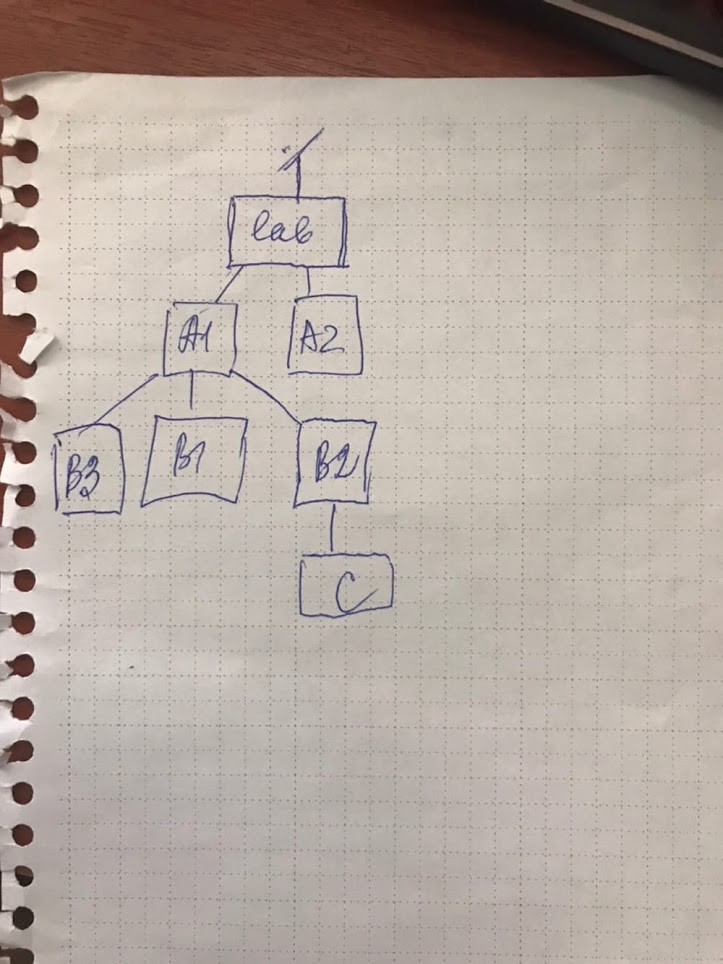 lab
A1 A2
B3 B1 B2
C